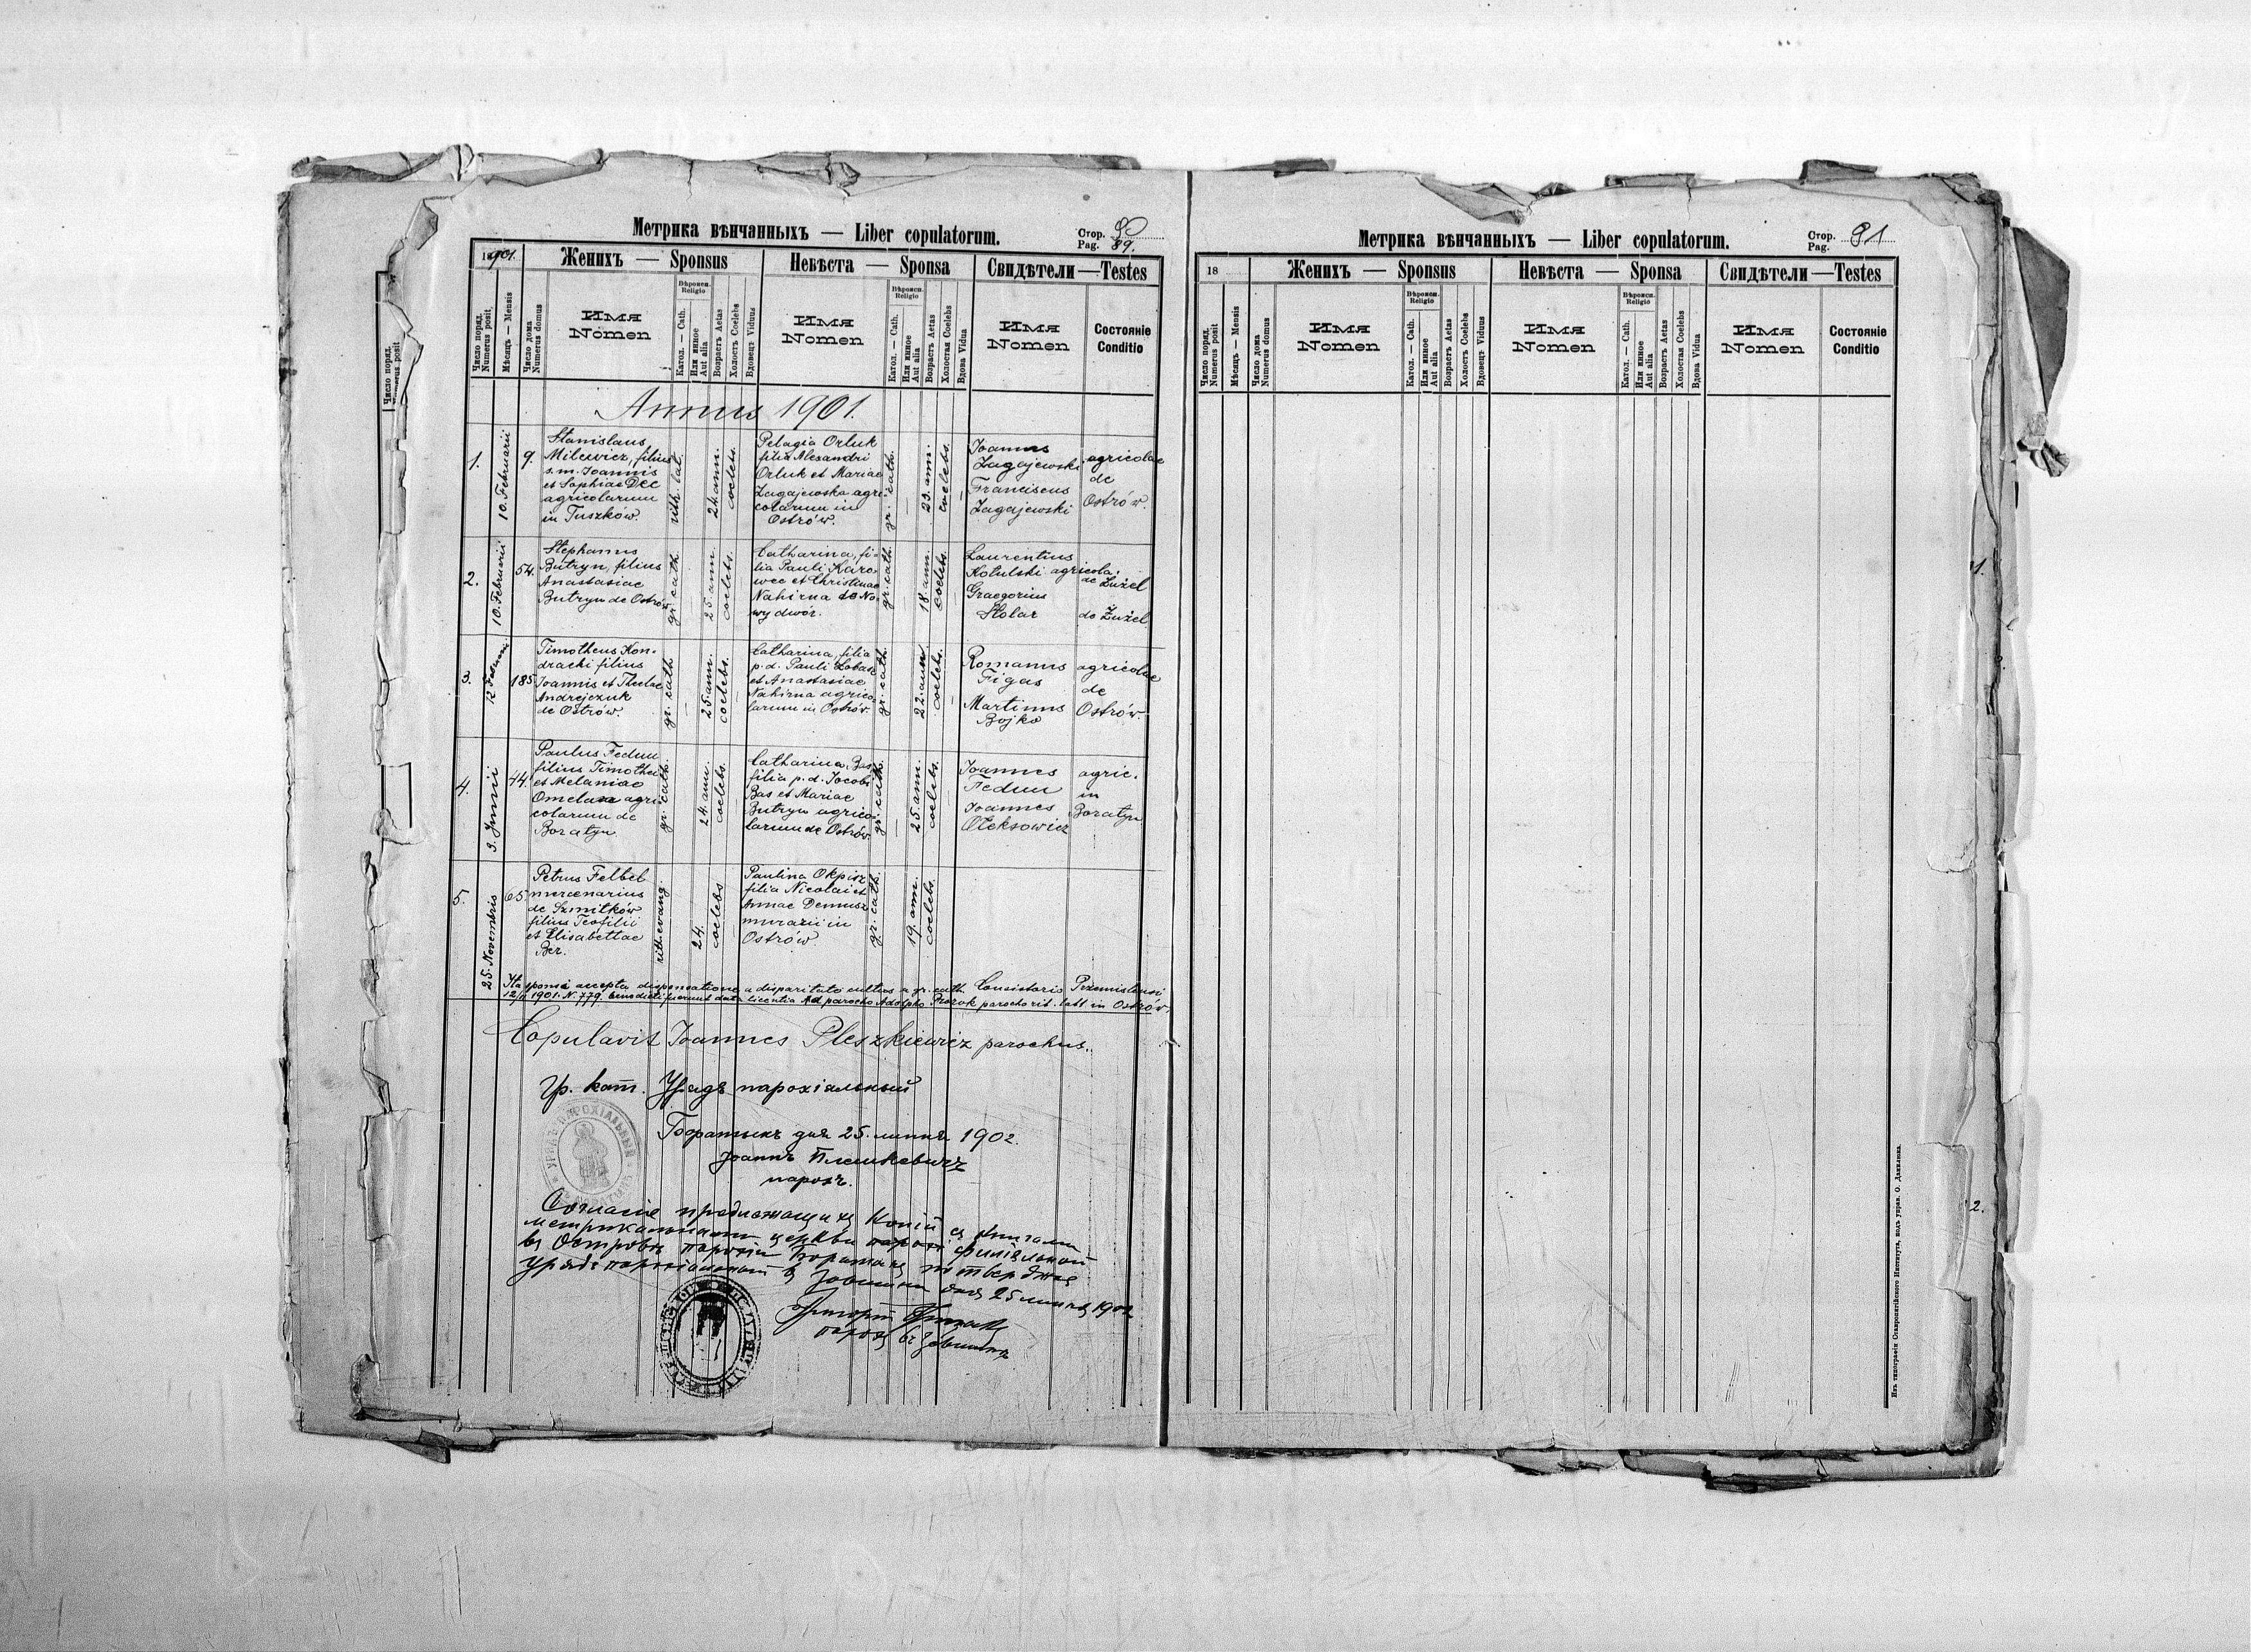 Метрика вѣнчанныхъ — Liber copulatorum.
Стор. 90
Pag. 89.
1901.
Женихъ — Sponsus
Невѣста — Sponsa
Свидѣтели — Testes
Число поряд. Numerus posit.
Мѣсяцъ — Mensis
Число дома Numerus domus
Имя Nomen
Вѣроисп. Religio
Катол. — Cath.
Или иное Aut alia
Возрастъ Aetas
Холостъ Coelebs
Вдовецъ Viduus
Имя Nomen
Вѣроисп. Religio
Катол. — Cath.
Или иное Aut alia
Возрастъ Aetas
Холостая Coelebs
Вдова Vidua
Имя Nomen
Состояніе Conditio
Annus 1901.
1.
10. Februarii
9.
Stanislaus
Milewicz, filius
s.m. Joannis
et Sophiae Dec
agricolarum
in Tuszków.
rith. lat.
24 ann.
coelebs.
Pelagia Orluk
filia Alexandri
Orluk et Mariae
Zagajewska agri-
colarum in
Ostrów.
gr. cath.
23. ann.
coelebs.
Joannes
Zagajewski
Franciscus
Zagajewski
agricolae
de
Ostrów.
2.
10. Februarii
54.
Stephanus
Butryn, filius
Anastasiae
Butryn de Ostrów
gr. cath.
25. ann.
coelebs.
Catharina, fi-
lia Pauli Karo-
wec et Christinae
Nahirna de No-
wy dwór.
gr. cath.
18. ann.
coelebs.
Laurentius
Kotulski agricola
de Żużel
Graegorius
Stolar
de Żużel
3.
12 Februarii
185
Timotheus Kon-
dracki filius
Joannis et Theclae
Andrejczuk
de Ostrów.
gr. cath.
25. ann.
coelebs.
Catharina, filia
p.d. Pauli
et Anastasiae
Nahirna agrico-
larum in Ostrów.
gr. cath.
22. ann.
coelebs.
Romanus
Figas
Martinus
Bojko
agricolae
de
Ostrów.
4.
3. Junii
44.
Paulus Fedun
filius Timothei
et Melaniae
agri-
colarum de
Boratyn
gr. cath.
24. ann.
coelebs.
Catharina Bas
filia p.d. Jacobi
Bas et Mariae
Butryn agrico-
larum de Ostrów.
gr. cath.
25. ann.
coelebs.
Joannes
Fedun
Joannes
Oleksowicz
agric.
in
Boratyn
5.
25. Novembris
65
Petrus Felbel
mercenarius
de Szmitków
filius Teofilii
et Elisabethae
Ber.
rit. evang.
24.
coelebs
Paulina Okpisz
filia Nicolai et
Annae Demusz
murarii in
Ostrów.
gr. cath.
19. ann.
coelebs.
accepta dispensatione a disparitate cultus a gr. cath. Consistorio Premisliensi
1901. N. 779. licentia parocho Adolpho parocho rit. latt. in Ostrów.
Copulavit Joannes Pleszkiewicz parochus.
Гр. кат. Урядъ парохіяльный
Боратынъ дня 25. липня 1902.
Іоаннъ Плешкевичъ
парохъ.
Согласіе предлежащихъ копій съ книгами
метрикальными церкви филіяльной
въ Островѣ парохіи Боратынъ потверджае
Урядъ парохіяльный въ дня 25 липня 1902
Метрика вѣнчанныхъ — Liber copulatorum.
Стор. 91
Pag.
18
Женихъ — Sponsus
Невѣста — Sponsa
Свидѣтели — Testes
Число поряд. Numerus posit
Мѣсяцъ — Mensis
Число дома Numerus domus
Имя Nomen
Вѣроисп. Religio
Катол. — Cath.
Или иное Aut alia
Возрастъ Aetas
Холостъ Coelebs
Вдовецъ Viduus
Имя Nomen
Вѣроисп. Religio
Катол. — Cath.
Или иное Aut alia
Возрастъ Aetas
Холостая Coelebs
Вдова Vidua
Имя Nomen
Состояніе Conditio
Изъ типографіи Ставропигійского Института, подъ управ. О. Данилюка.